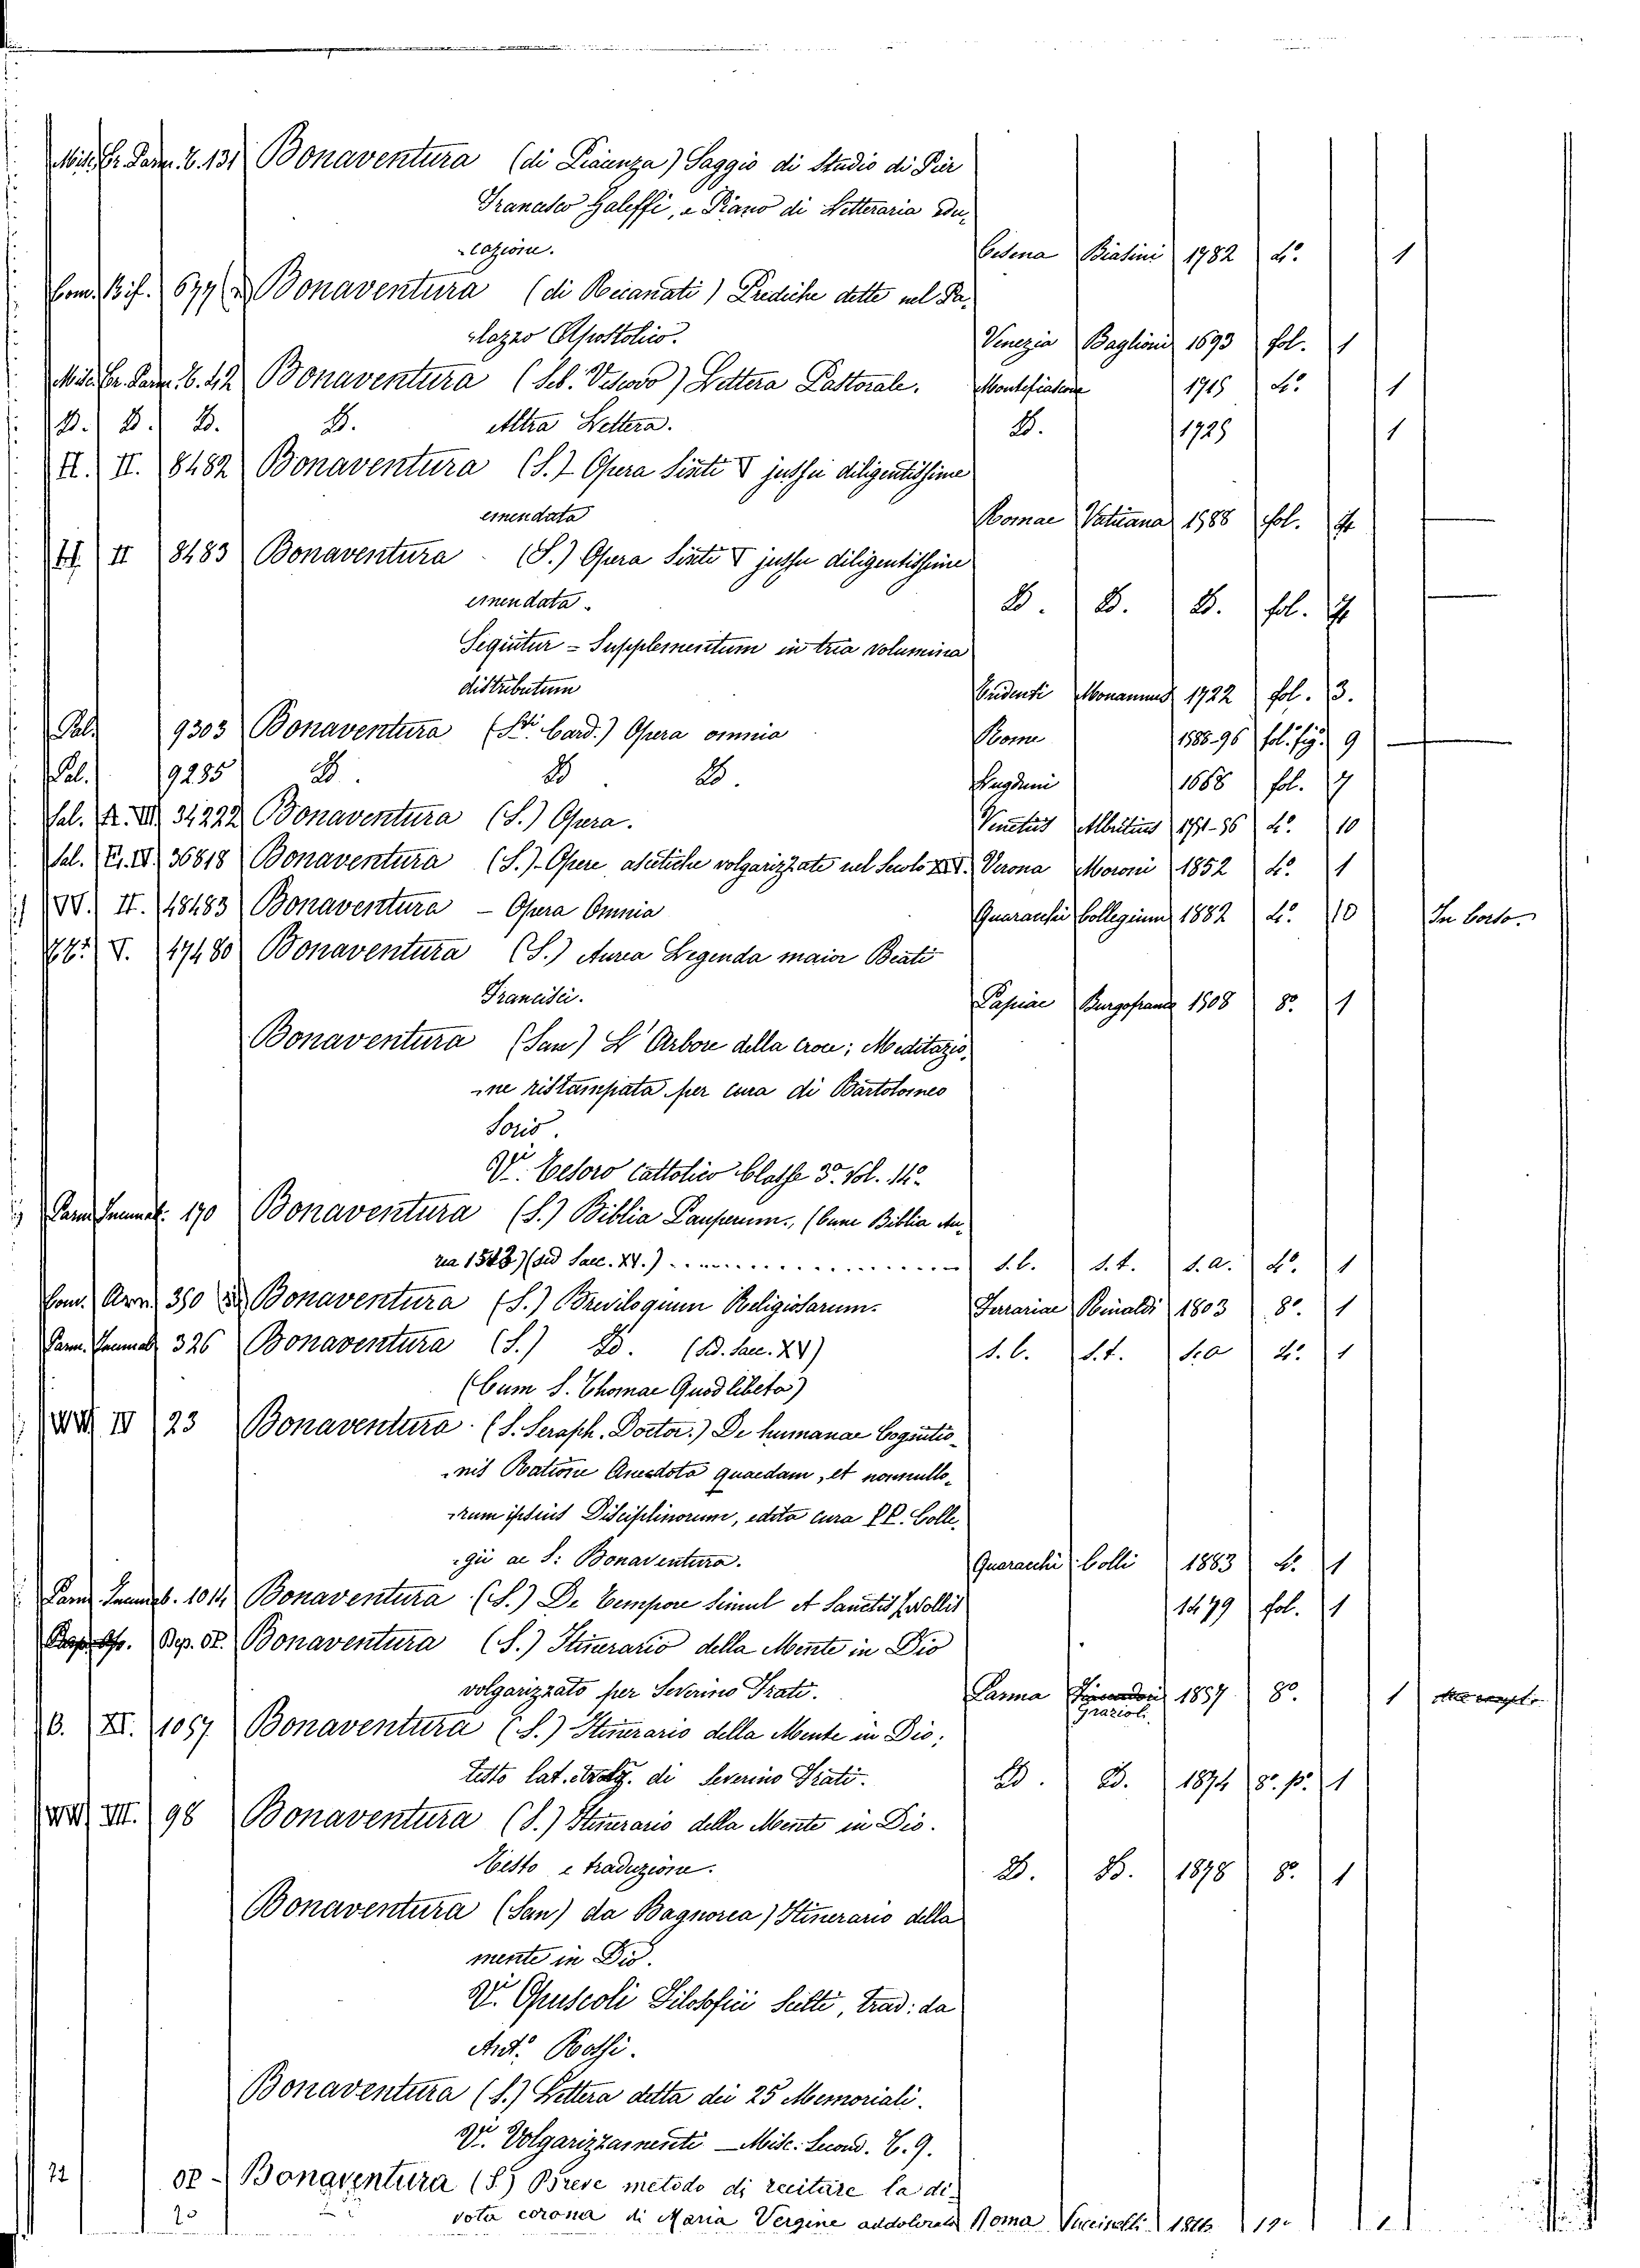 Misc. Er. Parm. 6. 131 Bonaventura (di Piacenza) Saggio di Studio di Pier
Francesco Galeffi, e Piano di Letteraria edu-
-cazione. Cesena Biasini 1782 4º. 1
Com. Bif. 677 Bonaventura (di Recanati) Prediche dette nel Pa-
-lazzo Apostolico. Venezia Baglioni 1693 fol. 1
Misc. Er. Parm. 6. 42 Bonaventura (Seb. Vescovo) Lettera Pastorale. Montefiascone 1715 4º. 1
D. D. D. D. Altra Lettera. D. 1725 1
H. II. 8482 Bonaventura (S.) Opera Sixti V jussu diligentissime
emendata Romae Vaticana 1588 fol. 7
H. II 8483 Bonaventura (S.) Opera Sixti V jussu diligentissime
emendata. D. D. D. fol. 7
Sequitur = Supplementum in tria volumina
distributum Tridenti Monaunus 1722 fol. 3.
Pal. 9303 Bonaventura (Sti. Card.) Opera omnia Rome 1588-96 fol. fig. 9
Pal. 9285 D. D. D. Lugduni 1668 fol. 7
Sal. R. VII. 34222 Bonaventura (S.) Opera. Venetiis Albritius 1751-56 4º. 10
Sal. E. IV. 36818 Bonaventura (S.) - Opere ascetiche volgarizzate nel Secolo XIV. Verona Moroni 1852 4º. 1
VV. II. 48483 Bonaventura - Opera Omnia Quaracchi Collegium 1882 4º. 10 In Corso.
V. 47480 Bonaventura (S.) Aurea Legenda maior Beati
Francisci. Papiae Burgofranco 1508 8º. 1
Bonaventura (San) L'Arbore della croce; Meditazio-
-ne ristampata per cura di Bartolomeo
Sorio.
Vi. Tesoro cattolico Classe 3ª. Vol. 14º.
Parm. Incunab. 170 Bonaventura (S.) Biblia Pauperum. (Cum Biblia Au-
rea 1543) (sed Saec. XV.) s.l. s.t. s.a. 4º. 1
Com. Arm. 350 Bonaventura (S.) Breviloquium Religiosarum. Ferrariae Rinaldi 1803 8º. 1
Parm. Incunab. 326 Bonaventura (S.) D. (Ed. Saec. XV) s.l. s.t. s.a 4º. 1
(Cum S. Thomae Quodlibeta)
IV 23 Bonaventura (S. Seraph. Doctor.) De humanae Cognitio-
-nis Ratione Anecdota quaedam, et nonnullo-
-rum ipsius Discipulinorum, edita cura PP. Colle-
-gii ac S: Bonaventura. Quaracchi Colli 1883 4º. 1
Parm. Incunab. 1014 Bonaventura (S.) De Tempore simul et Sanctis Zwollis 1479 fol. 1
Bonaventura (S.) Itinerario della Mente in Dio
volgarizzato per Severino Frati. Parma Grazioli 1857 8º. 1
B. XI. 1057 Bonaventura (S.) Itinerario della Mente in Dio;
testo lat. e volg. di Severino Frati. D. D. 1874 8º. p. 1
VII. 98 Bonaventura (S.) Itinerario della Mente in Dio.
Testo e traduzione. D. D. 1878 8º. 1
Bonaventura (San) da Bagnorea) Itinerario della
mente in Dio.
Vi. Opuscoli Filosofici Scelti, trad: da
Antº. Rossi.
Bonaventura (S.) Lettera detta dei 25 Memoriali.
Vi. Volgarizzamenti - Misc. Second. C. 9.
72 op - Bonaventura (S.) Breve metodo di recitare la di-
20 vota corona di Maria Vergine addolorata Roma 1816 12º 1